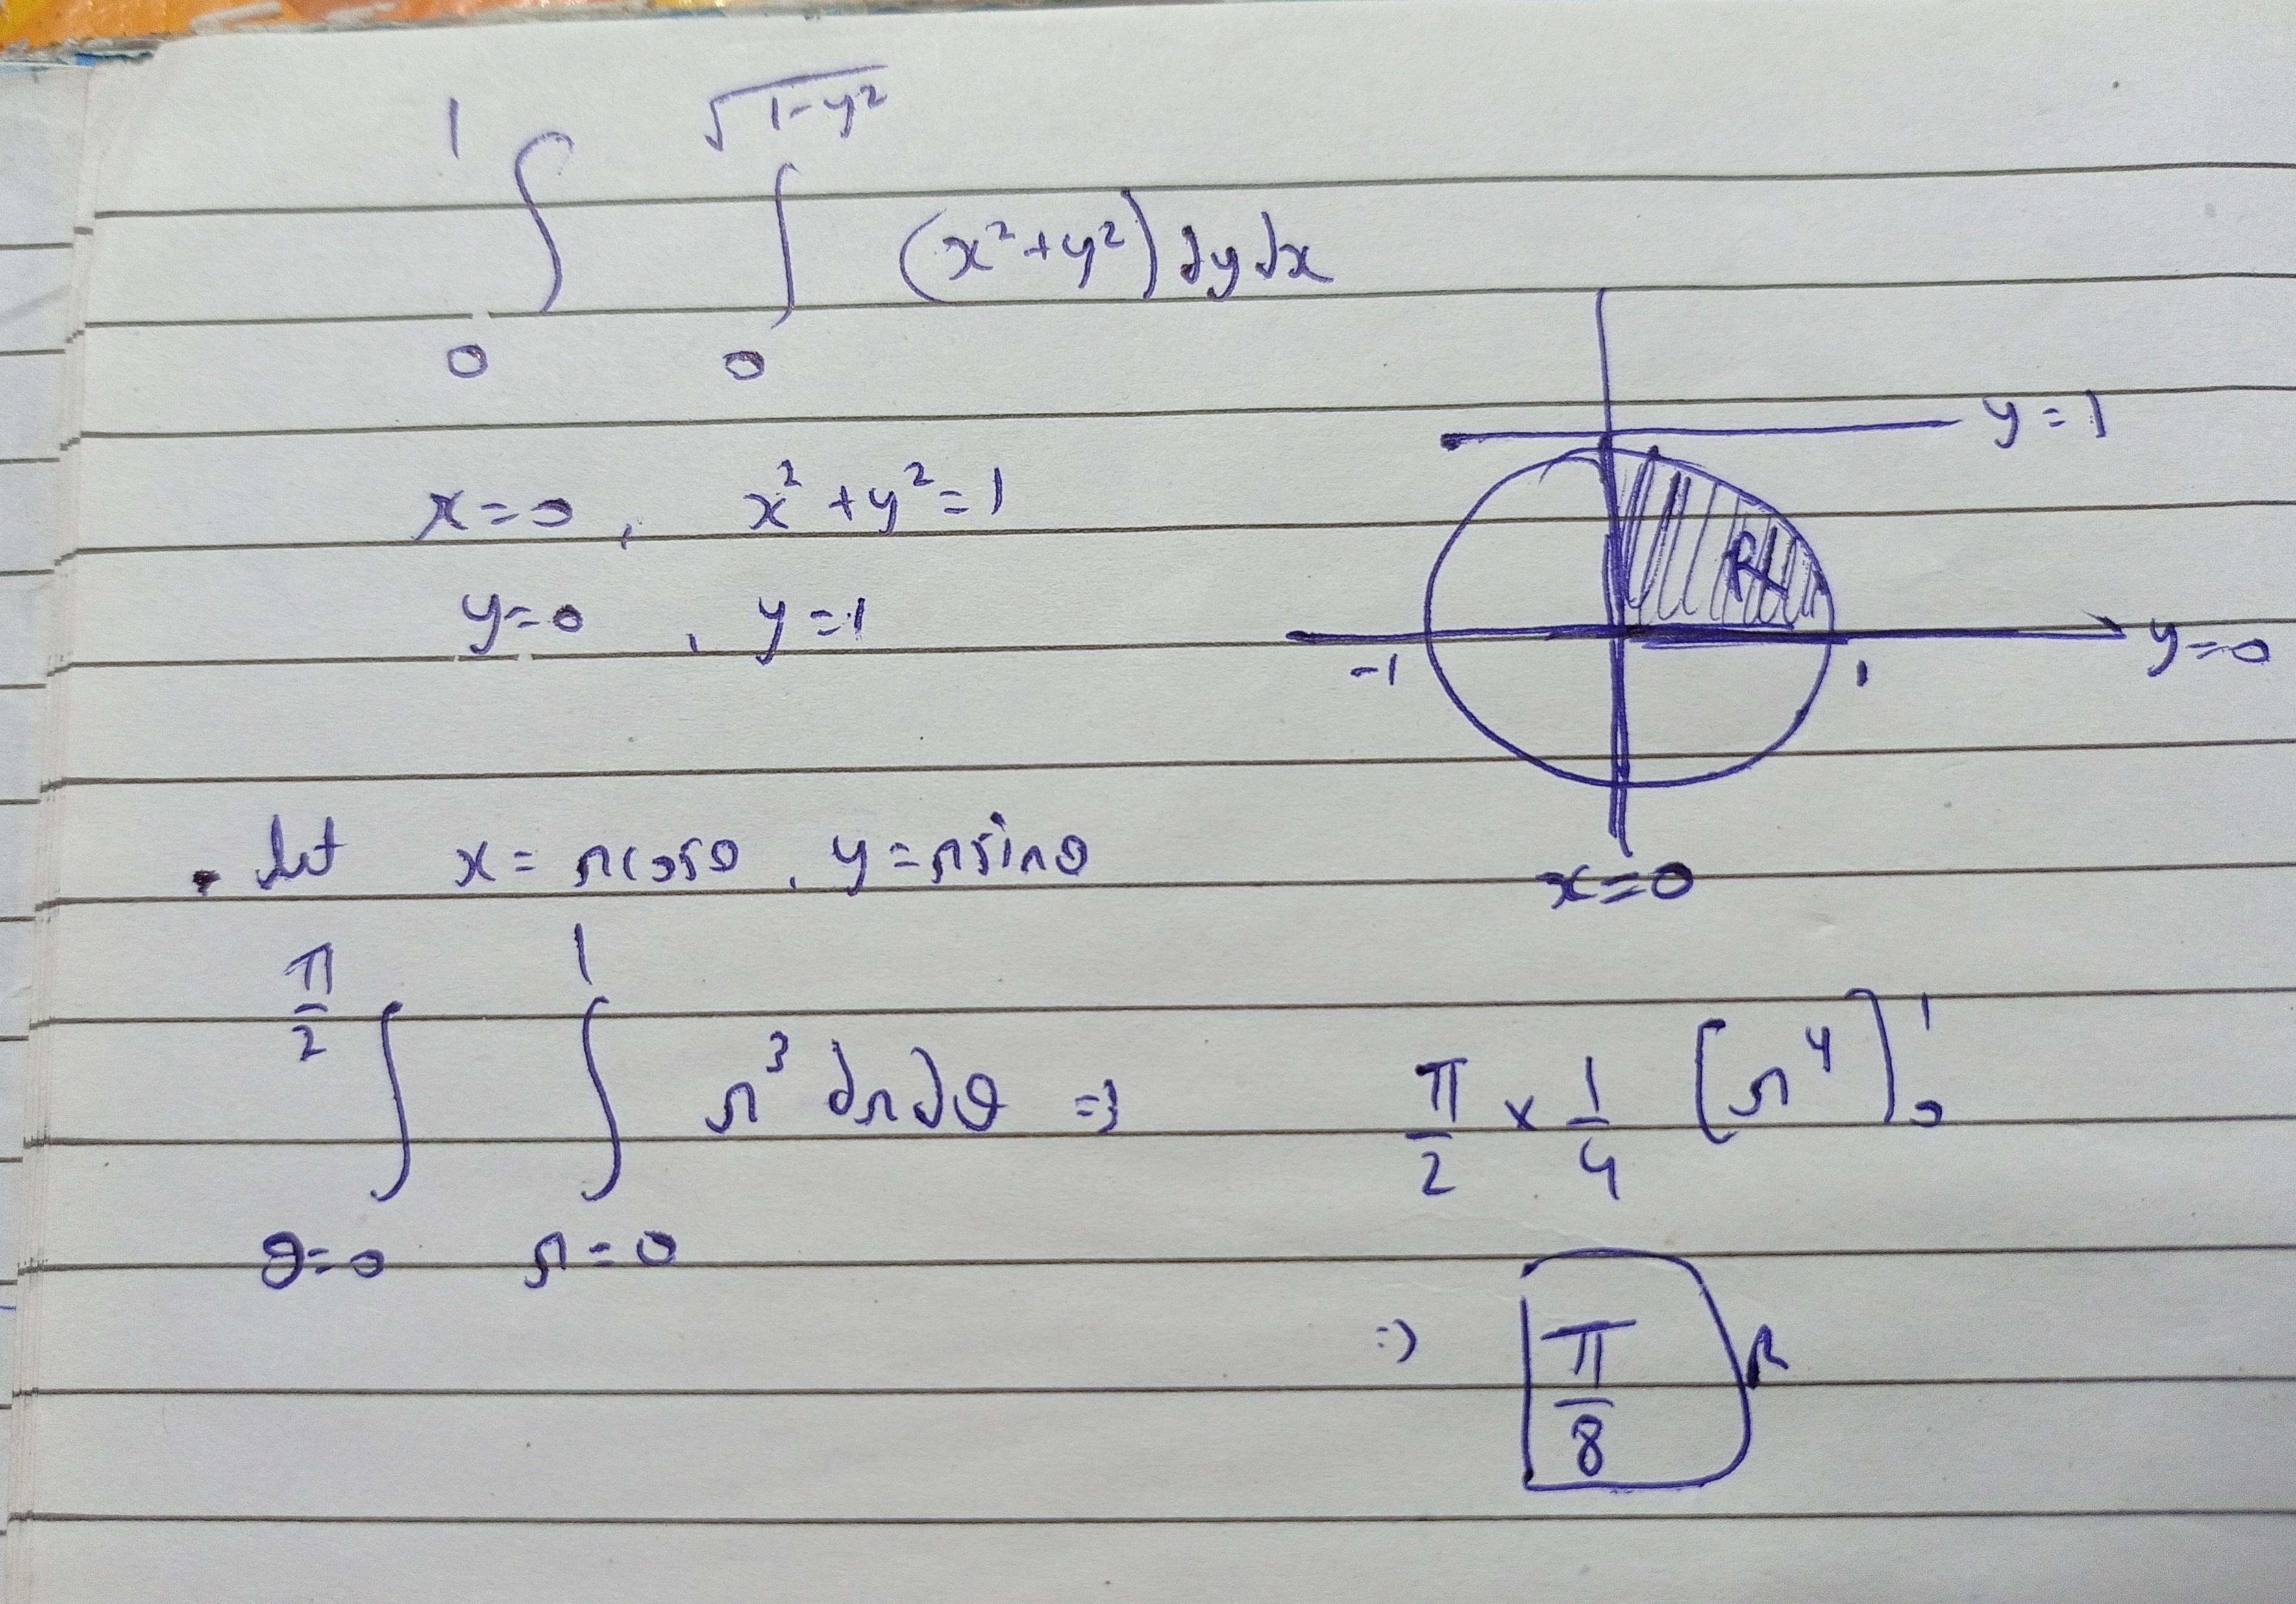 ∫₀¹ ∫₀^√(1-y²) (x²+y²) dy dx
x=0, x²+y²=1
y=0, y=1
y=1
R
-1 1 y=0
x=0
Let x=rcosθ, y=rsinθ
∫_{θ=0}^{π/2} ∫_{r=0}^{1} r³ dr dθ ⇒ π/2 × 1/4 [r⁴]₀¹
⇒ π/8